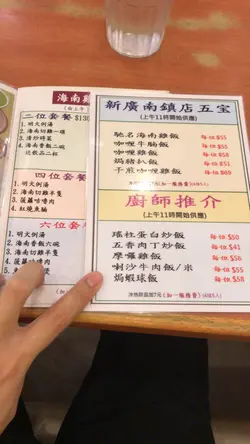 海南雞
二位套餐 $130
1. 明火例湯
2. 海南切雞一碟
3. 清炒時菜
4. 海南香飯二碗
送飲品二杯
四位套
1. 明火例湯
2. 海南切雞半隻
3. 菠蘿咕嚕肉
4. 紅燒魚腩
六位套
1. 明火例湯
2. 海南香飯六碗
3. 海南切雞半隻
4. 菠蘿咕嚕肉
新廣南鎮店五宝
(上午11時開始供應)
馳名海南雞飯 每位$55
咖喱牛腩飯
咖喱雞飯
焗豬扒飯 每位$51
干煎咖喱雞飯 每位$69
廚師推介
(上午11時開始供應)
瑤柱蛋白炒飯 每位$50
五香肉丁炒飯 每位$50
摩囉雞飯 每位$56
喇沙牛肉飯/米 每位$55
焗蝦球飯 每位$58